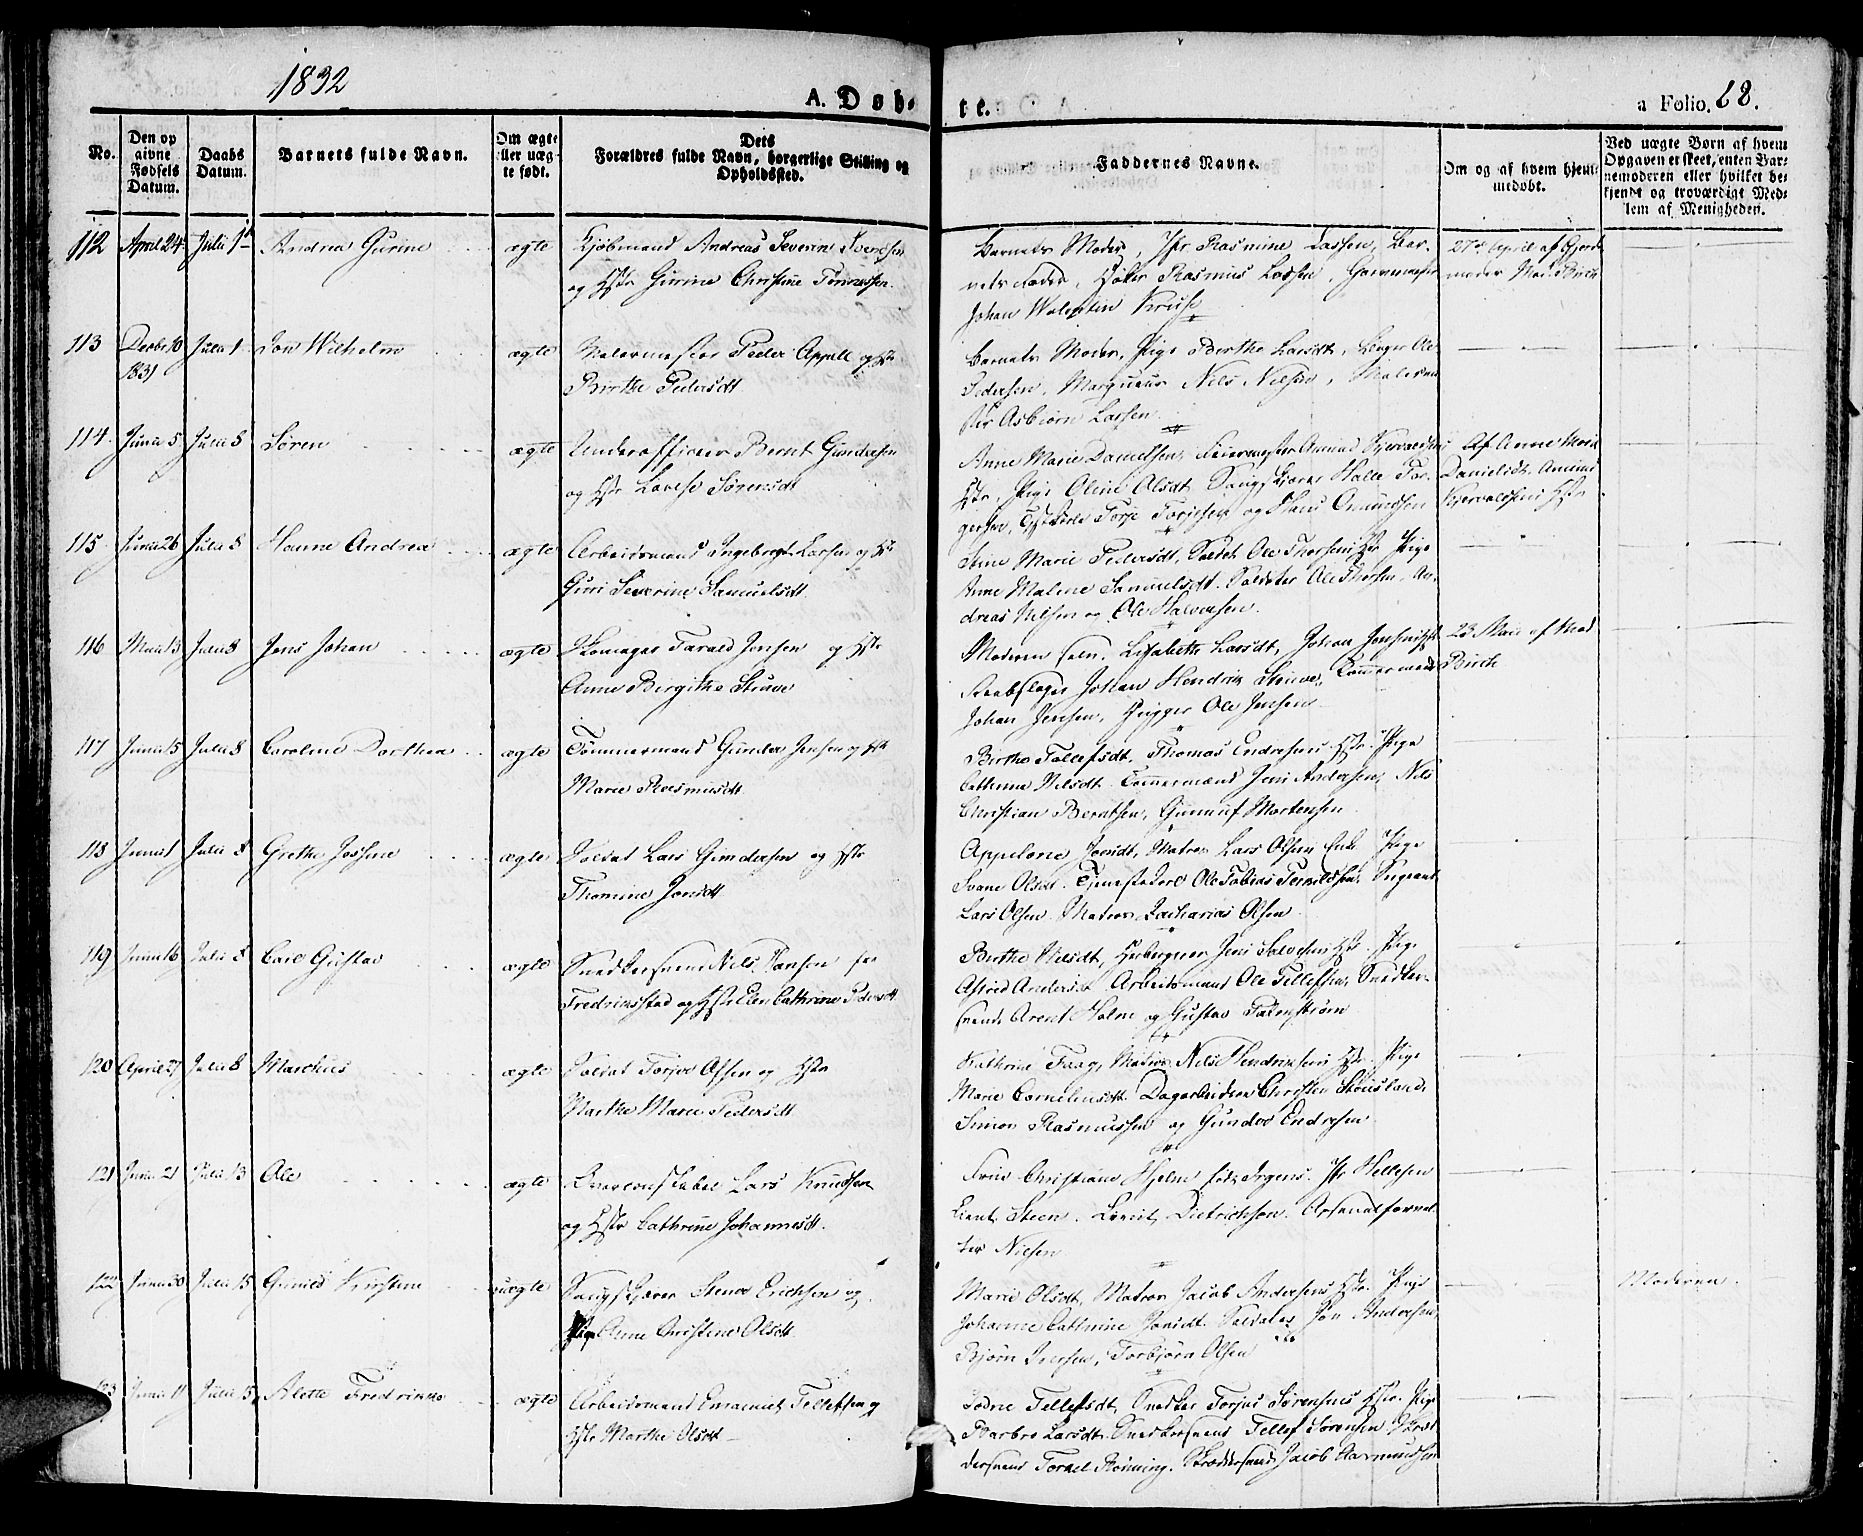 1832
A. Døb-
te.
a Folio. 68.
No.
Den op
givne
Fødsels
Datum.
Daabs
Datum.
Barnets fulde Navn.
Om ægte
eller uæg-
te født.
Dets
Forældres fulde Navn, borgerlige Stilling og
Opholdssted.
Faddernes Navne.
Om og af hvem hjem-
medøbt.
Ved uægte Børn af hvem
Opgaven er skeet, enten Bar-
nemoderen eller hvilket be-
kjendt og troværdigt Med-
lem af Menigheden.
112 April 24 Julii 1 Andrea Gurine ægte Kjøbmand Andreas Severin Svendsen
og Hstr Gurine Christine Tønnessen
Barnets Moder, Jfr Rasmine Lassen, Bar-
nets Fader, Høker Rasmus Lassen, Garvermester
Johan Valentin Kruse
27de April af Gjorde
moder Mad. Birch
113 Decbr 10
1831
Julii 1 Jon Wilhelm ægte Malermester Peder Appell og Hstr
Birthe Pedersdt
Barnets Moder, Pige Berthe Larsdt, Ole
Pedersen, Marqueur Nils Nielsen, Malerme
ster Asbiørn Larsen
114 Junii 5 Julii 8 Søren ægte Underofficeer Bernt Gundersen
og Hstr Lovise Sørensdt
Anne Marie Danielsen, Feiermester Amund Kjervaldsens
Hstr, Pige Oline Olsdt, Saugskjærer Halle Tor-
gersen, Terje Torjesen og Hans Omundsen
Af Anne Marie
Danielsdt. Amund
Kjervaldsens Hstr
115 Junii 26 Julii 8 Hanne Andrea ægte Arbeidsmand Ingebregt Larsen og Hstr
Guri Severine Samuelsdt
Stine Marie Pedersdt, Soldat Ole Thorsens Hstr Pige
Anne Malene Samuelsdt. Soldater Ole Thorsen, An-
dreas Nilsen og Ole Halvorsen.
116 Maii 13 Julii 8 Jens Johan ægte Skomager Tarald Jensen og Hstr
Anne Birgithe Stuwe
Moderen selv. Lisabethe Larsdt, Johan Jensens Hstr
Reebslager Johan Hendrik Stuwe, Tømmermand
Johan Jensen, Rigger Ole Jensen
23 Maii af Mad.
Birch
117 Junii 15 Julii 8 Caroline Dorthea ægte Tømmermand Gunder Jensen og Hstr
Marie Rasmusdt.
Birthe Tollefsdt, Thomas Endresens Hstr. Pige
Cathrine Nilsdt. Tømmermænd Jens Andersen, Nils
Christian Berntsen, Gunnuf Mortensen
118 Junii 1 Julii 8 Grethe Josine ægte Soldat Lars Gundersen og Hstr
Thomine Jonsdt
Appelone Jonsdt, Matros Lars Olsens Enke Pige
Svane Olsdt. Tjenestekarl Ole Tobias Terkildsen, Sergeant
Lars Olsen. Matros Zacharias Olsen
119 Junii 16 Julii 8 Carl Gustav ægte Snedkersvend Nils Hansen fra
Fredriksstad og Hstr Ellen Cathrine Pedersdt
Birthe Nilsdt, Jens Salvesens Hstr. Pige
Astrid Andersdt. Arbeidsmand Ole Tellefsen, Snedker-
svend Arent Holm og Gustav Palmstrøm
120 April 27 Julii 8 Marchus ægte Soldat Torjer Olsen og Hstr
Marthe Marie Pedersdt
Kathrine Faag, Matros Nils Hendriksens Hstr. Pige
Marie Corneliusdt. Dagarbeidere Christen Stousland,
Simon Rasmussen og Gunder Endresen
121 Junii 21 Julii 13 Ole ægte Overconstabel Lars Knudsen
og Hstr Cathrine Johannesdt.
Frue Christiane Hjelm født Jrgens. Jfr Hellesen
Lieut. Steen. Lieut. Dietrichson. Arsenalforval-
ter Nielsen
122 Junii 30 Julii 15 Gunild Kirstine uægte Saugskjærer Stener Erichsen og
Pige Anne Kirstine Olsdt.
Marie Olsdt, Matros Jacob Andersens Hstr. Pige
Johanne Cathrine Jonsdt. Soldater Jon Andersen,
Bjørn Iversen, Torbjørn Olsen
Moderen.
123 Junii 11 Julii 15 Alette Fredrikke ægte Arbeidsmand Emanuel Tellefsen og
Hstr Marthe Olsdt
Tellefsdt, Snedker Torjus Sørensens Hstr. Pige
Barbro Larsdt. Snedkersvend Tellef Sørensen,
dersvend Torkel Rønning. Skræddersvend Jacob Aarmundsen